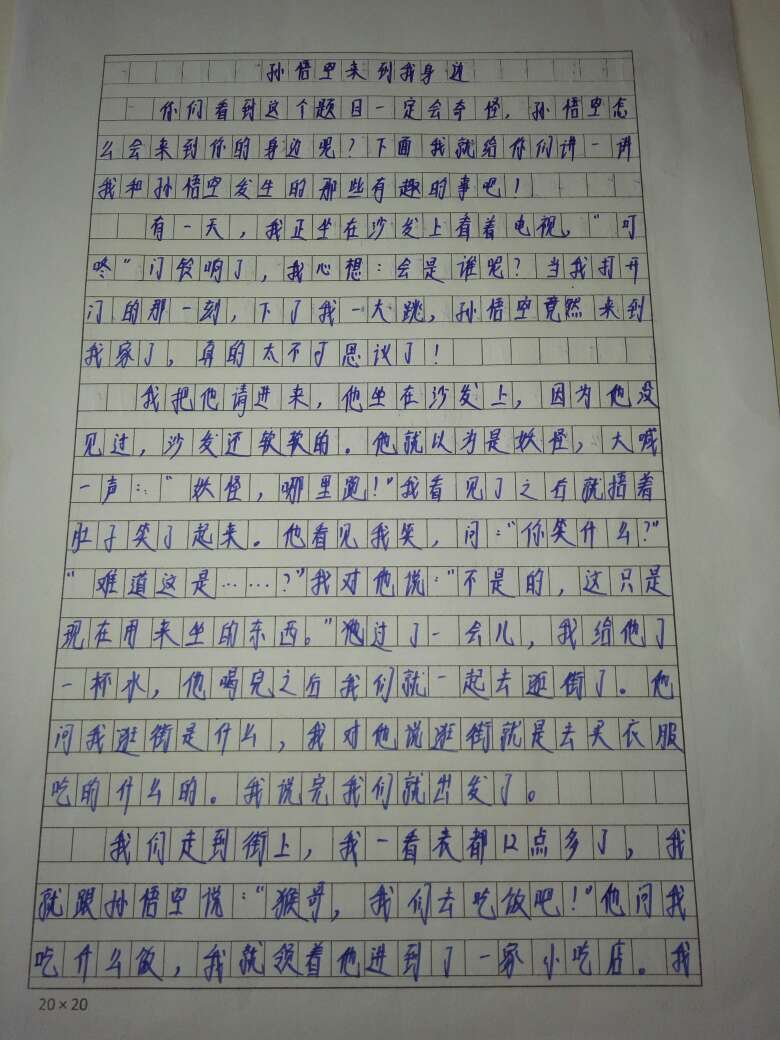 孙悟空来到我身边
你们看到这个题目一定会奇怪，孙悟空怎
么会来到你的身边呢？下面我就给你们讲一讲
我和孙悟空发生的那些有趣的事吧！
有一天，我正坐在沙发上看着电视。“叮
咚“门铃响了，我心想：会是谁呢？当我打开
门的那一刻，下了我一大跳，孙悟空竟然来到
我家了，真的太不可思议了！
我把他请进来，他坐在沙发上，因为他没
见过，沙发还软软的。他就以为是妖怪，大喊
一声：“妖怪，哪里跑！”我看见了之后就捂着
肚子笑了起来。他看见我笑，问：“你笑什么？”
“难道这是……？”我对他说：“不是的，这只是
现在用来坐的东西。”过了一会儿，我给他了
一杯水，他喝完之后我们就一起去逛街了。他
问我逛街是什么，我对他说逛街就是去买衣服
吃的什么的。我说完我们就出发了。
我们走到街上，我一看表都12点多了，我
就跟孙悟空说：“猴哥，我们去吃饭吧！”他问我
吃什么饭，我就领着他进到了一家小吃店。我
20×20